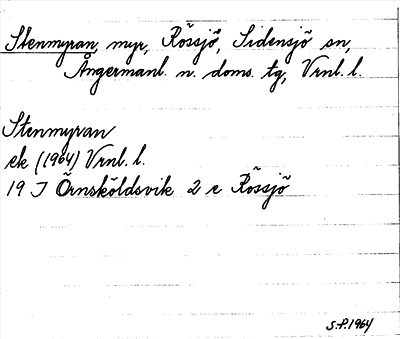 Stenmyran, myr, Rössjö, Sidensjö sn,
Ångermanl. n. doms. tg, Vrnl. l.
Stenmyran
ek (1964) Vrnl. l.
19 J Örnsköldsvik 2 e Rössjö
S.P. 1964